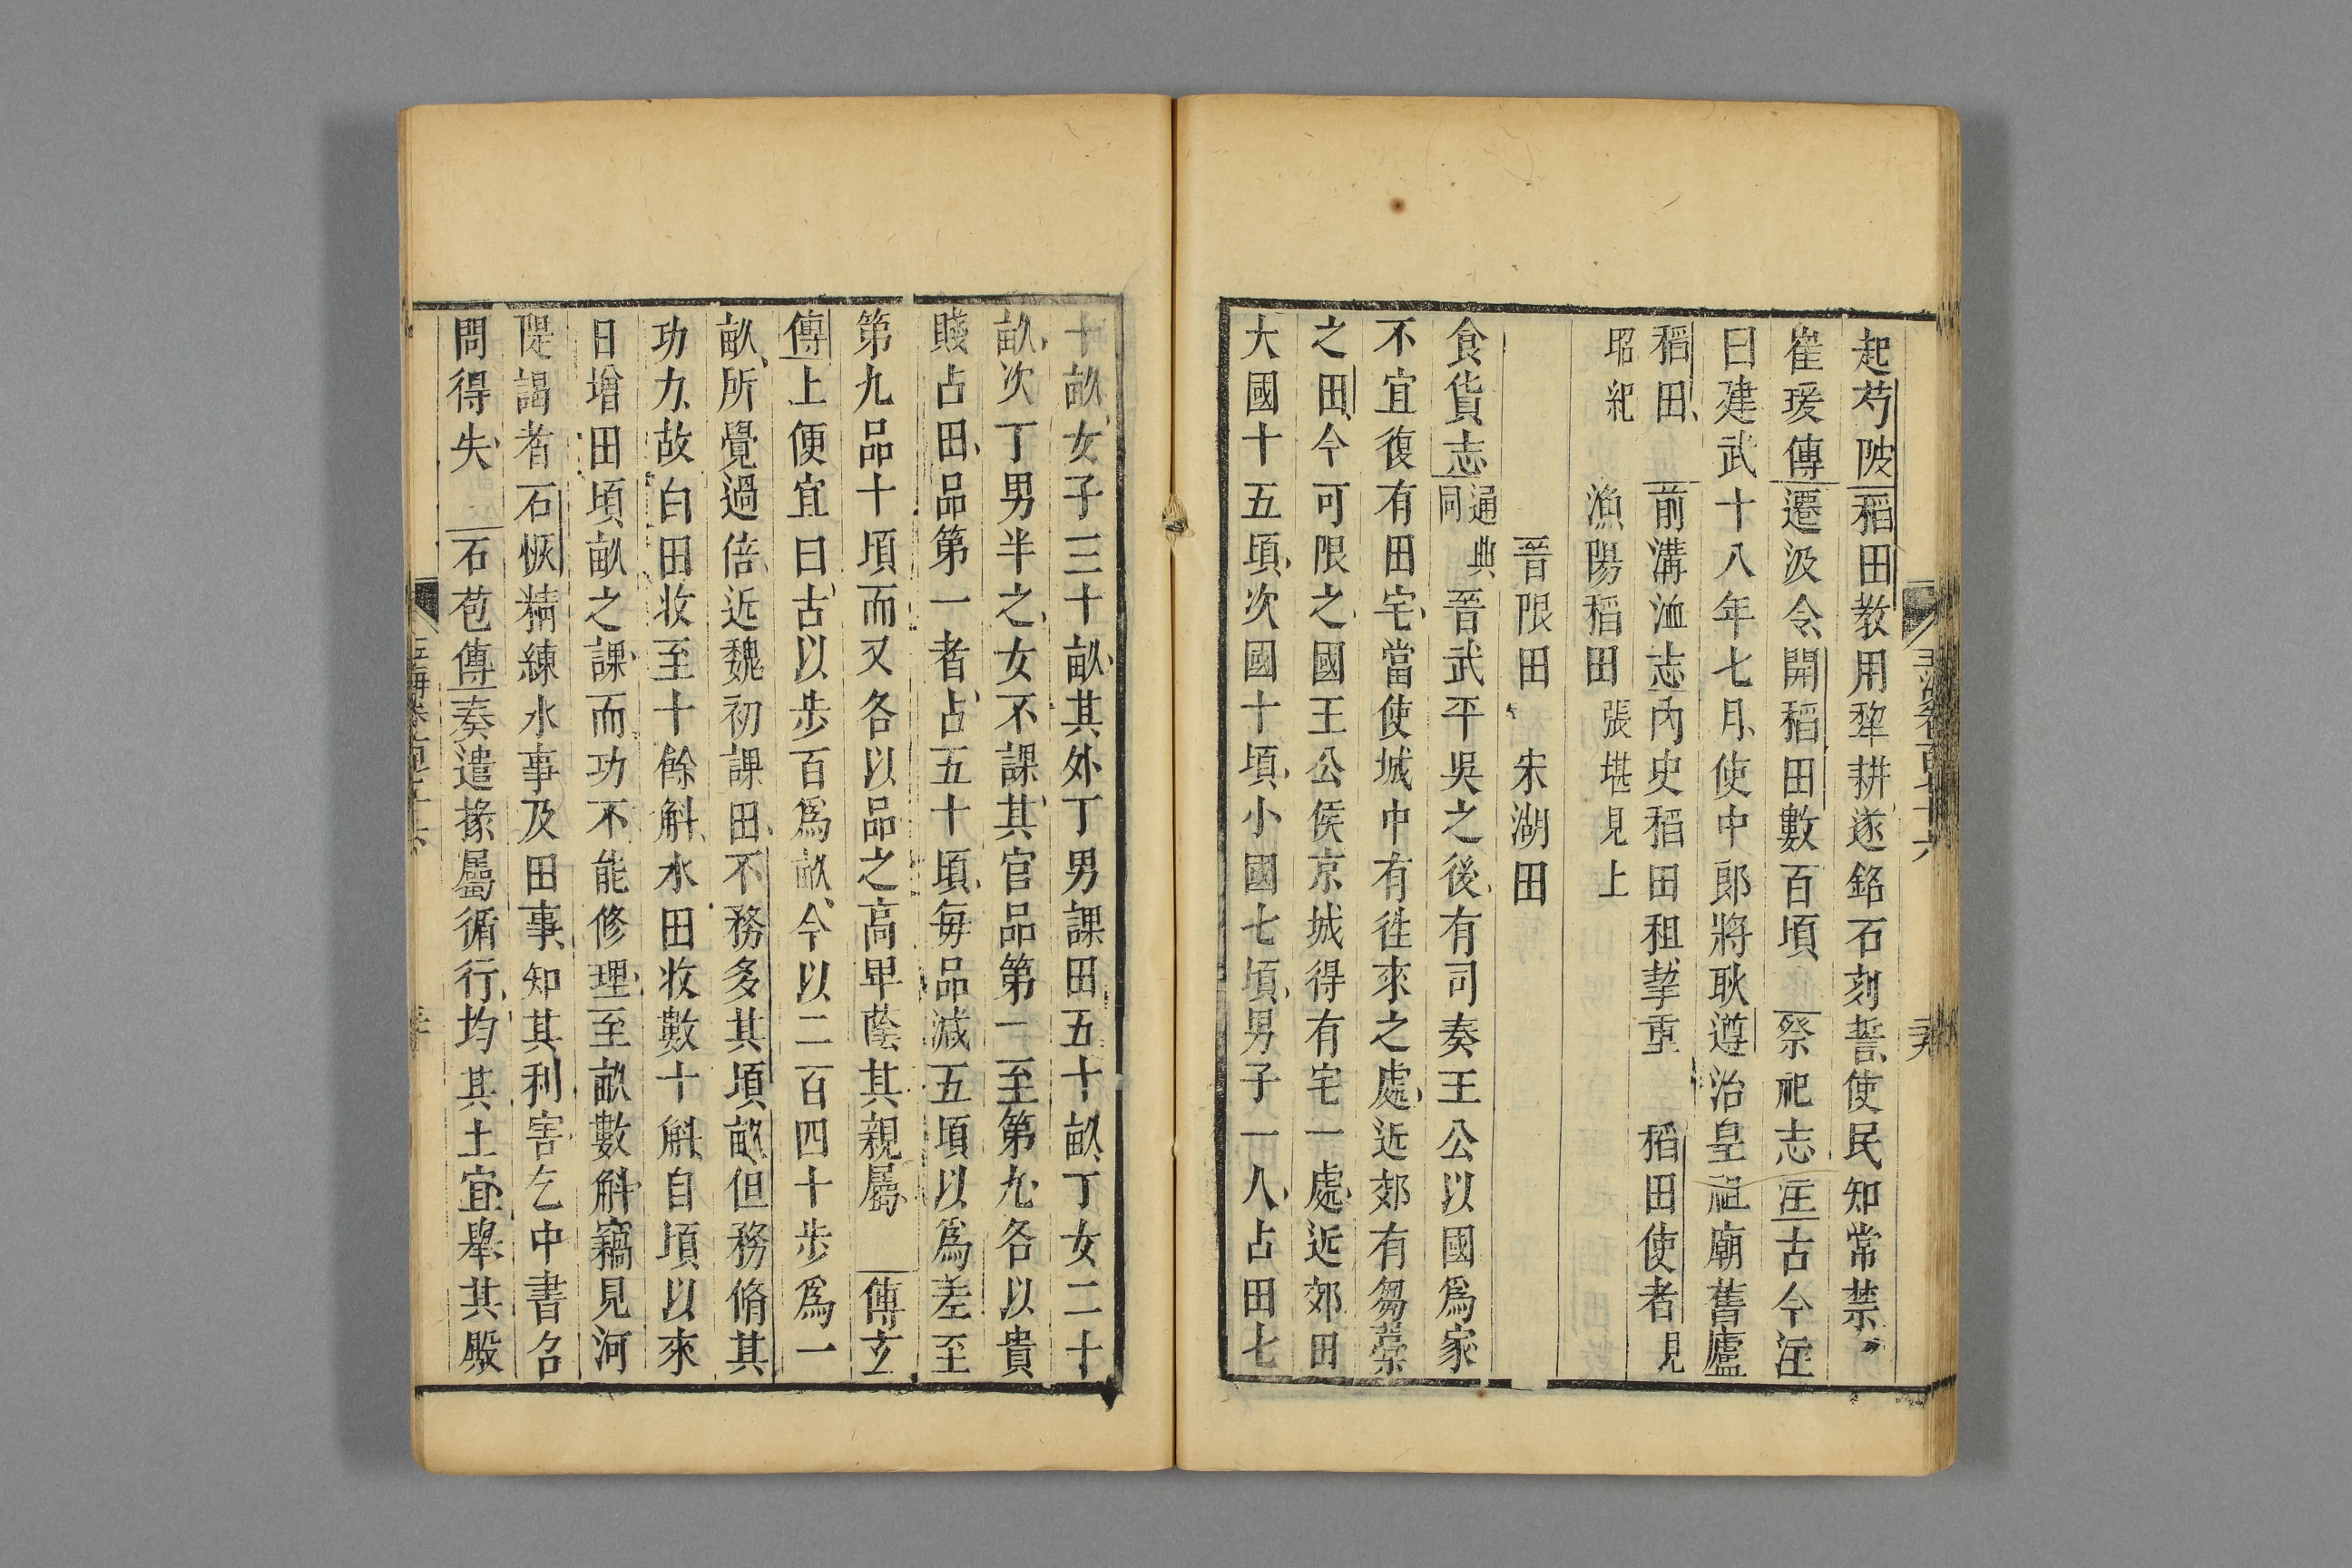 起芍陂稻田教用犂耕遂銘石刻誓使民知常禁
崔瑗傳遷汲令開稻田數百頃 祭祀志注古今注
曰建武十八年七月使中郎將耿遵治皇祖廟舊廬
稻田 前溝洫志内史稻田租挈重 稻田使者見
昭紀 漁陽稻田張堪見上
晉限田 宋湖田
食貨志通典同晉武平吳之後有司奏王公以國爲家
不宜復有田宅當使城中有徃來之處近郊有芻藁
之田今可限之國王公侯京城得有宅一處近郊田
大國十五頃次國十頃小國七頃男子一人占田七
十畝女子三十畝其外丁男課田五十畝丁女二十
畝次丁男半之女不課其官品第一至第九各以貴
賤占田品第一者占五十頃每品減五頃以爲差至
第九品十頃而又各以品之高卑蔭其親屬 傅玄
傳上便宜曰古以步百爲畝今以二百四十步爲一
畝所覺過倍近魏初課田不務多其頃畝但務脩其
功力故白田收至十餘斛水田收數十斛自頃以來
日增田頃畝之課而功不能修理至畝數斛竊見河
隄謁者石恢精練水事及田事知其利害乞中書召
問得失 石苞傳奏遣掾屬循行均其土宜舉其殿